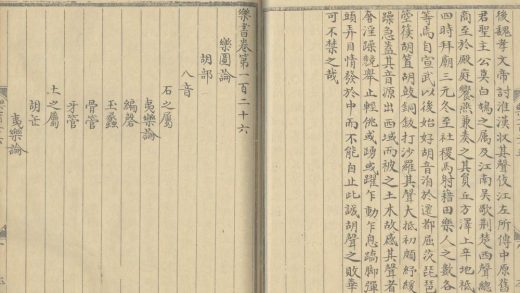 後魏孝文帝討淮漢收其聲伎江左所傳中原舊
君聖主公莫白鳩之屬及江南吳歌荊楚西聲總
商至於殿庭饗燕兼奏之其員丘方澤上辛地祇
四時拜廟三元冬至社稷馬射籍田樂人之數各
等焉自宣武以後始好胡音洎於遷都屈茨琵琶
箜篌胡笛胡鼓銅鈸打沙羅其聲大抵初頗紓緩
躁急蓋其音源出西域而被之土木故感其聲者
奢淫躁競舉止輕佻或踴或躍乍動乍息蹻脚彈
頭弄目情發於中而不能自止此誠胡聲之敗華
可不禁之哉
樂書卷第一百二十六
樂圖論
胡部
八音
石之屬
夷樂論
編磬
玉蠡
骨管
牙管
土之屬
胡缶
夷樂論